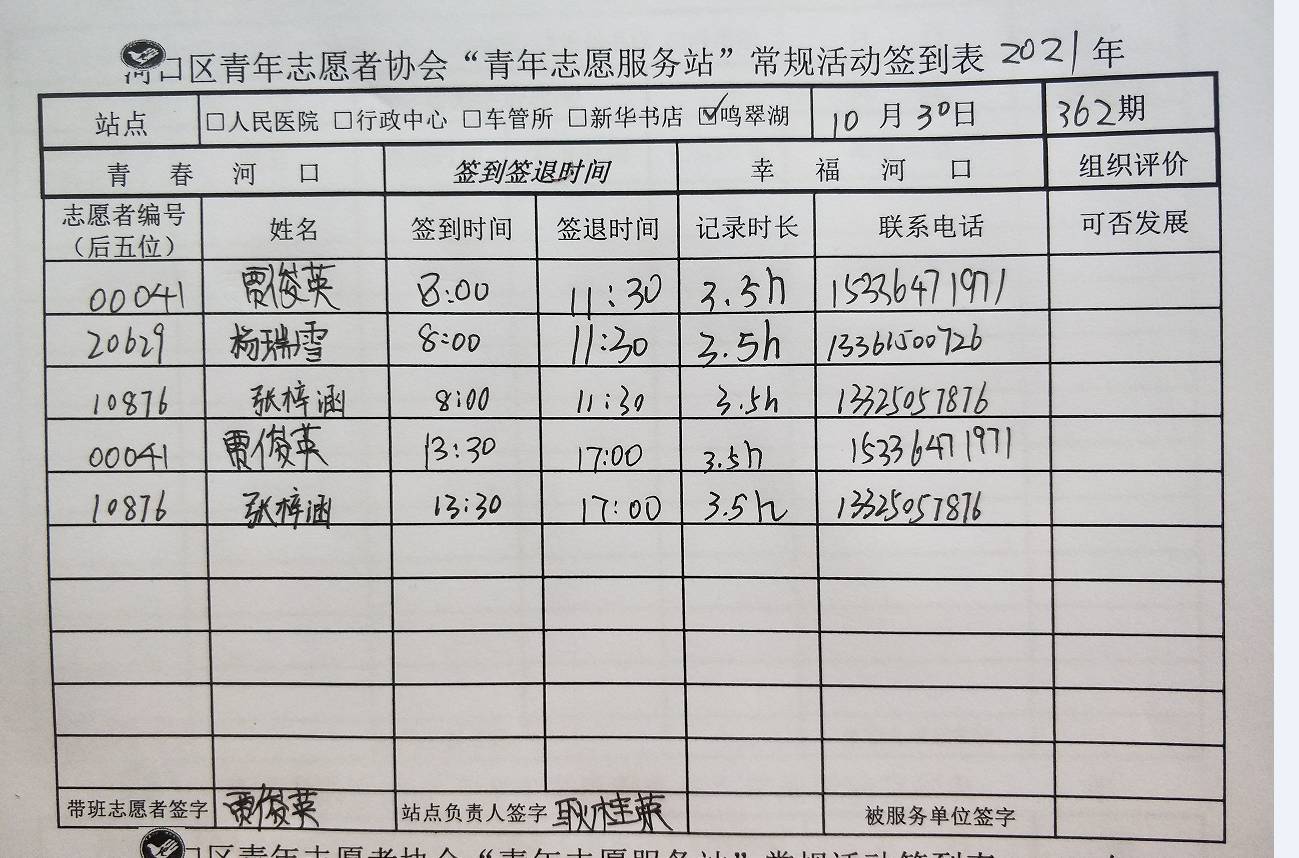 河口区青年志愿者协会“青年志愿服务站”常规活动签到表 2021年
站点 □人民医院 □行政中心 □车管所 □新华书店 ☑鸣翠湖 10月30日 362期
青春河口 签到签退时间 幸福河口 组织评价
志愿者编号（后五位） 姓名 签到时间 签退时间 记录时长 联系电话 可否发展
00041 贾俊英 8:00 11:30 3.5h 15336471971
20629 杨瑞雪 8:00 11:30 3.5h 13361500726
10876 张梓涵 8:00 11:30 3.5h 13325057876
00041 贾俊英 13:30 17:00 3.5h 15336471971
10876 张梓涵 13:30 17:00 3.5h 13325057876
带班志愿者签字 贾俊英 站点负责人签字 耿桂英 被服务单位签字
口区青年志愿者协会“青年志愿服务站”常规活动签到表